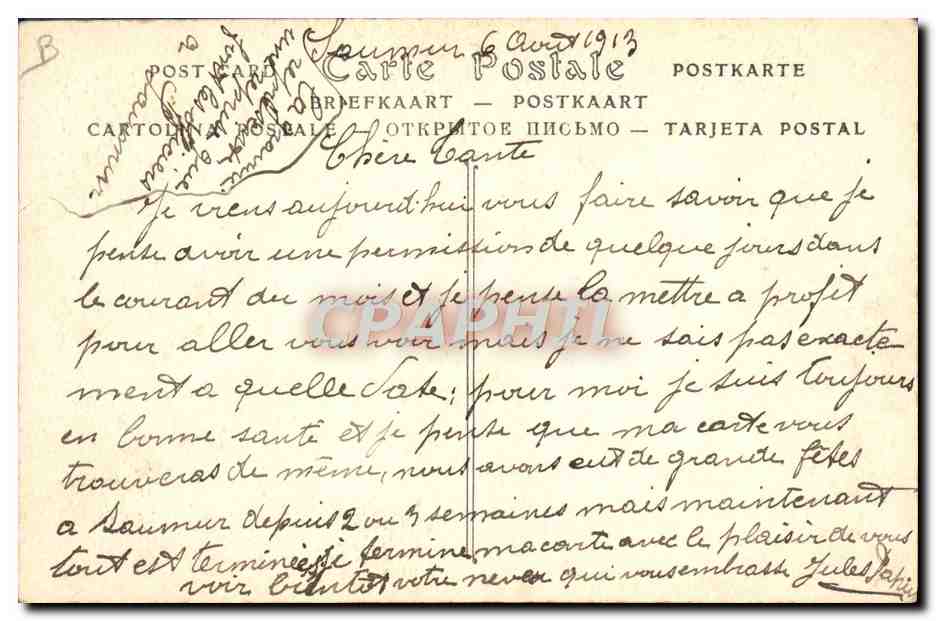 B
Saumur 6 Août 1913
POST CARD Carte Postale POSTKARTE
BRIEFKAART — POSTKAART
CARTOLINA POSTALE — ОТКРЫТОЕ ПИСЬМО — TARJETA POSTAL
Chère Tante
Je viens aujourd'hui vous faire savoir que je
pense avoir une permission de quelque jours dans
le courant du mois et je pense la mettre a profit
pour aller vous voir mais je ne sais pas exacte
ment a quelle date; pour moi je suis toujours
en bonne santé et je pense que ma carte vous
trouveras de même, nous avons eut de grande fêtes
a Saumur depuis 2 ou 3 semaines mais maintenant
tout est terminée je termine ma carte avec le plaisir de vous
voir bientôt votre neveu qui vous embrasse Jules
une
que
font les officiers
a
Saumur
CPARHTI